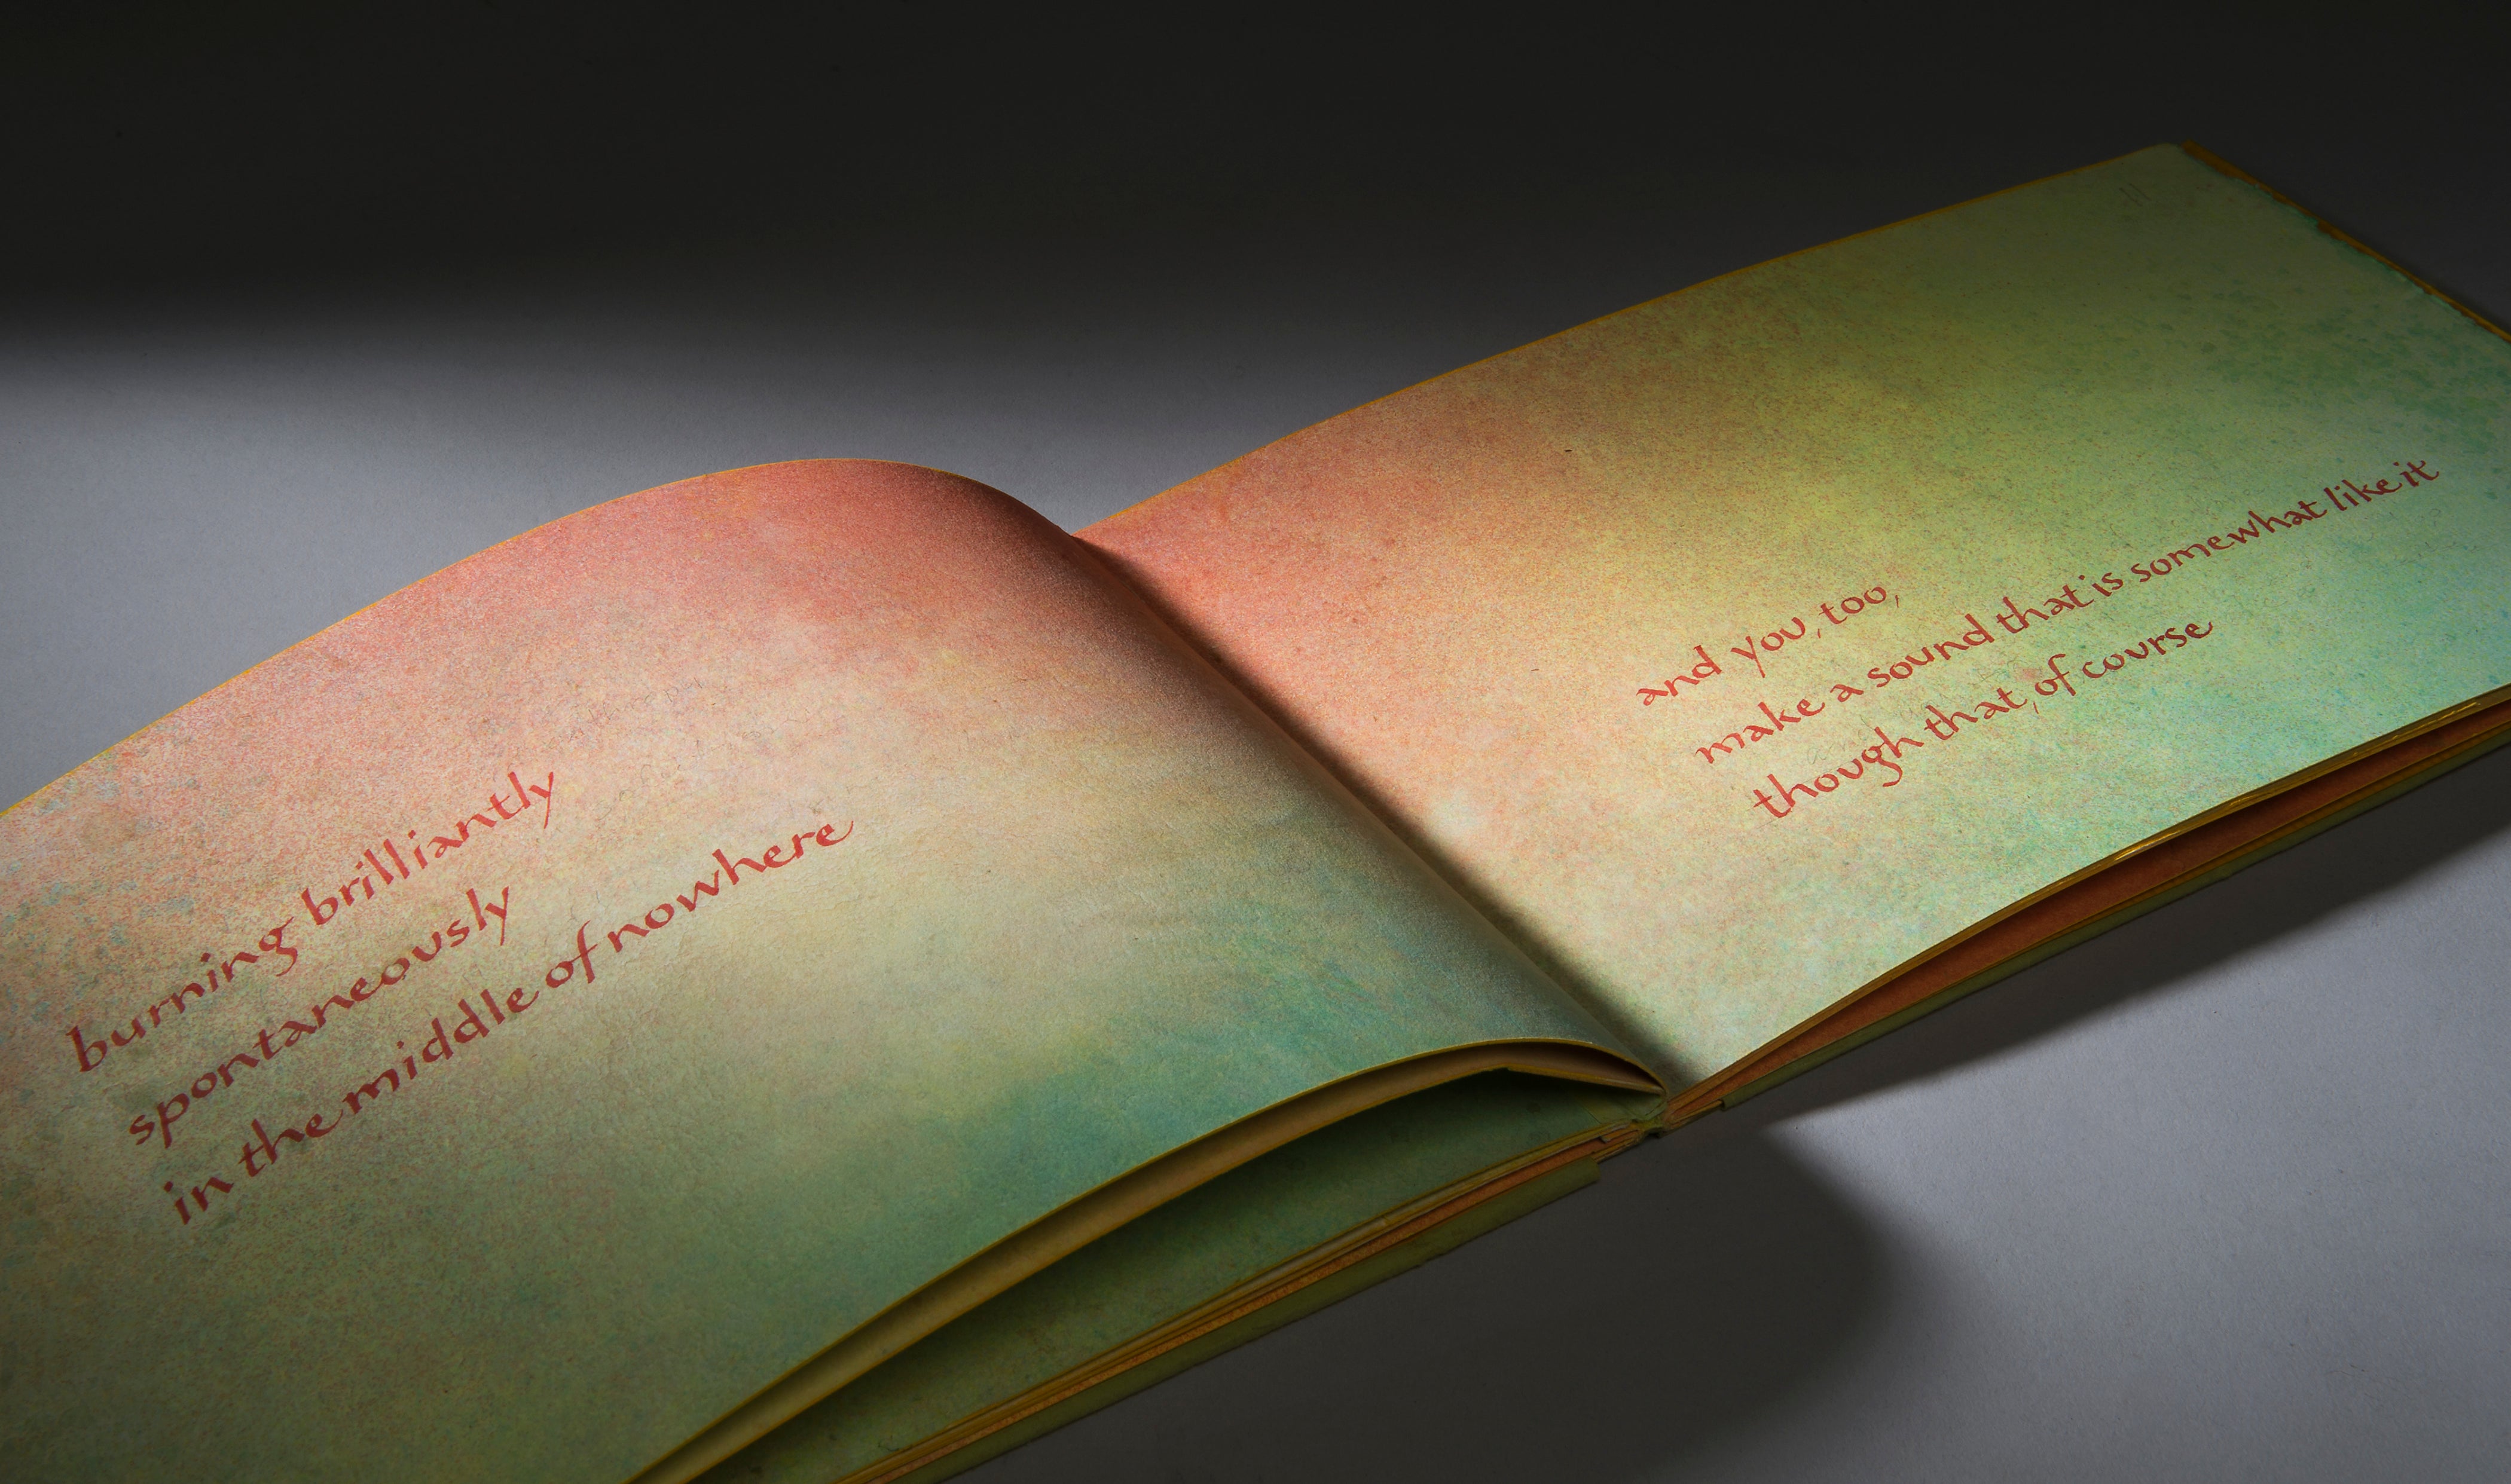 burning brilliantly
spontaneously
in the middle of nowhere
and you, too,
make a sound that is somewhat like it
though that, of course